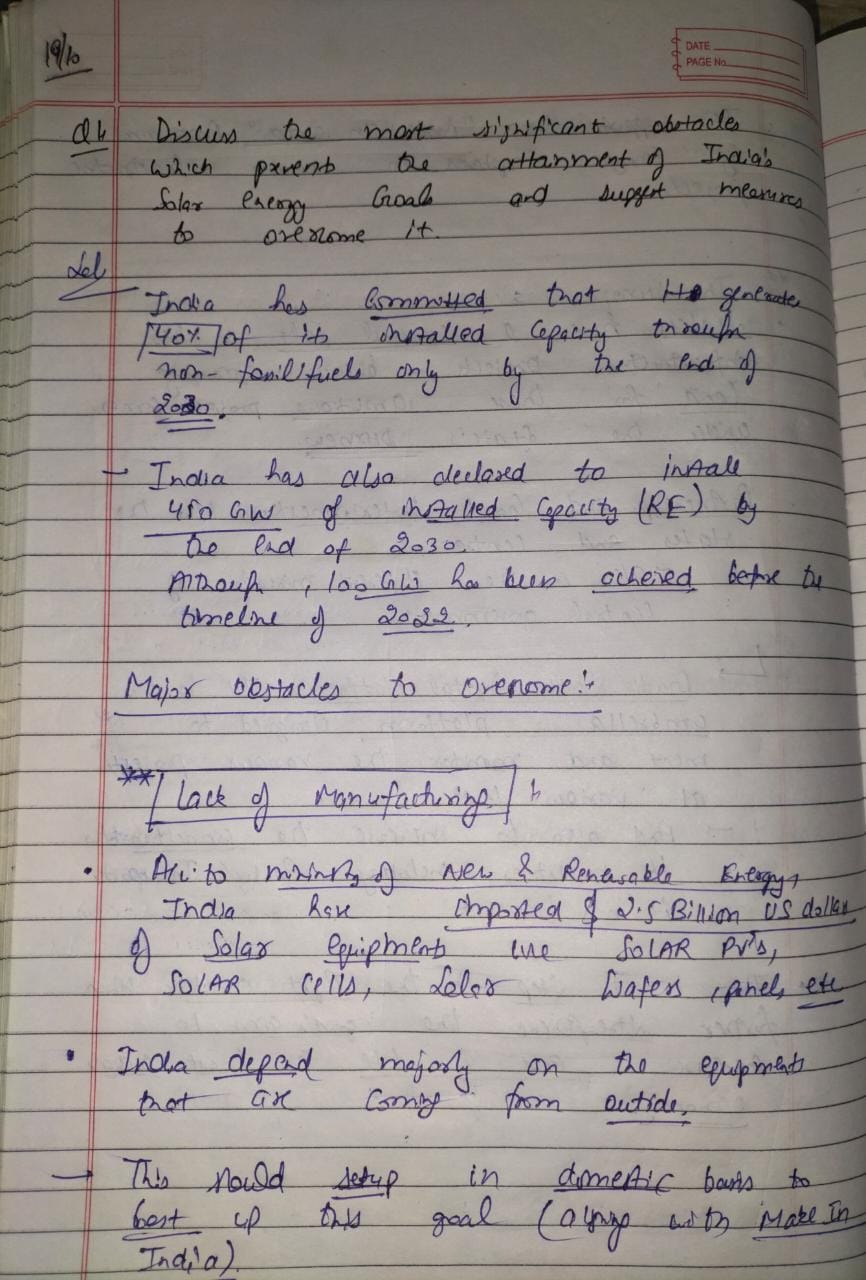 19/10
DATE
PAGE No.
Q4 Discuss the most significant obstacles
which prevents the attainment of India's
Solar energy Goals and suggest measures
to overcome it.
Sol
India has Committed that to generate
40% of its installed Capacity through
non-fossil fuels only by the end of
2030.
India has also declared to install
450 GW of installed Capacity (RE) by
the end of 2030.
Although, 100 GW has been acheived before the
timeline of 2022.
Major obstacles to overcome:-
** Lack of Manufacturing
• Acc. to ministry of New & Renewable Energy,
India have imported $ 2.5 Billion US dollar
of Solar equipments like SOLAR PV's,
SOLAR CELLS, Solar Wafers, panels etc
• India depend majorly on the equipments
that are Coming from outside.
→ This should setup in domestic basis to
best up this goal (aligng with Make In
India).